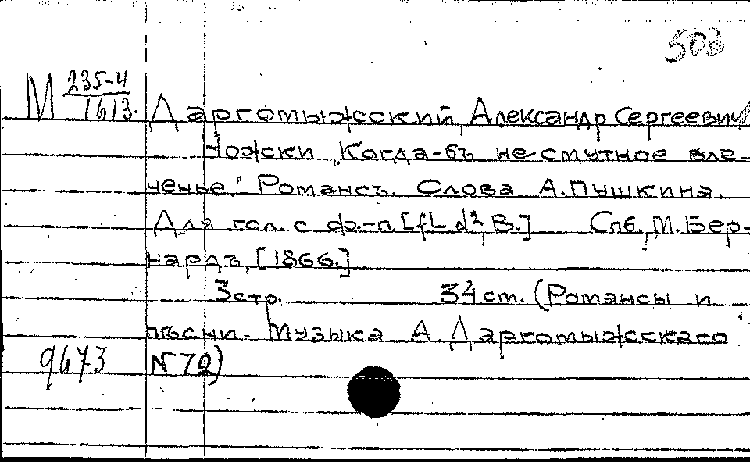 503
М 235-4
1613.
Даргомыжский, Александр Сергеевич
Ножки „Когда-бъ не смутное вле-
ченье." Романсъ. Слова А. Пушкина.
Для гол. с ф.-п [fL d², B.] Спб, М. Бер-
нардъ, [1866.]
3 стр. 34 ст. (Романсы и
пѣсни. Музыка А. Даргомыжскаго
9673 N 70)